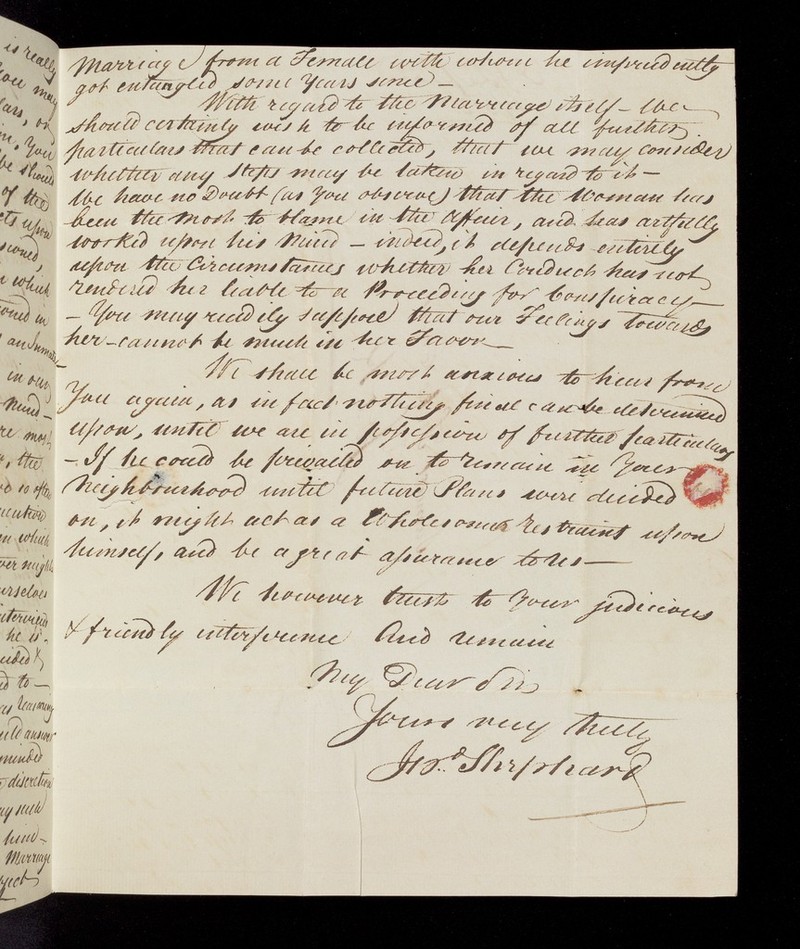 is really
You may
lars, or
m, You
be should
of the
cts upon
sioned,
n which
oned in
in our
Mind—
re most
, the
so often
in which
ver might
urselves
interview
he is.
d to—
reasoning
uld answer
minded
discretion
ay such
him—
Marriage
ject
Marriage from a Female with whom he imprudently
got entangled some Years since—
With regard to the Marriage itself— We
should certainly wish to be informed of all further
particulars that can be collected, that we may consider
whether any steps may be taken in regard to it—
We have no Doubt (as You observe) that the Woman has
been the most to blame in the Affair, and has artfully
worked upon his Mind— indeed, it depends entirely
upon the Circumstances whether her Conduct has not
rendered her liable to a Proceeding for Conspiracy—
— You may readily suppose that our Feelings towards
her— cannot be much in her Favor—
We shall be most anxious to hear from
You again, as in fact nothing final can be determined
upon, until we are in possession of further particulars
— If he could be prevailed on to remain in Your
Neighbourhood until future Plans were decided
on, it might act as a Wholesome restraint upon
himself, and be a great assurance to us—
We however trust to Your judicious
& friendly interference And remain
My Dear Sir
Yours very truly
Shephard